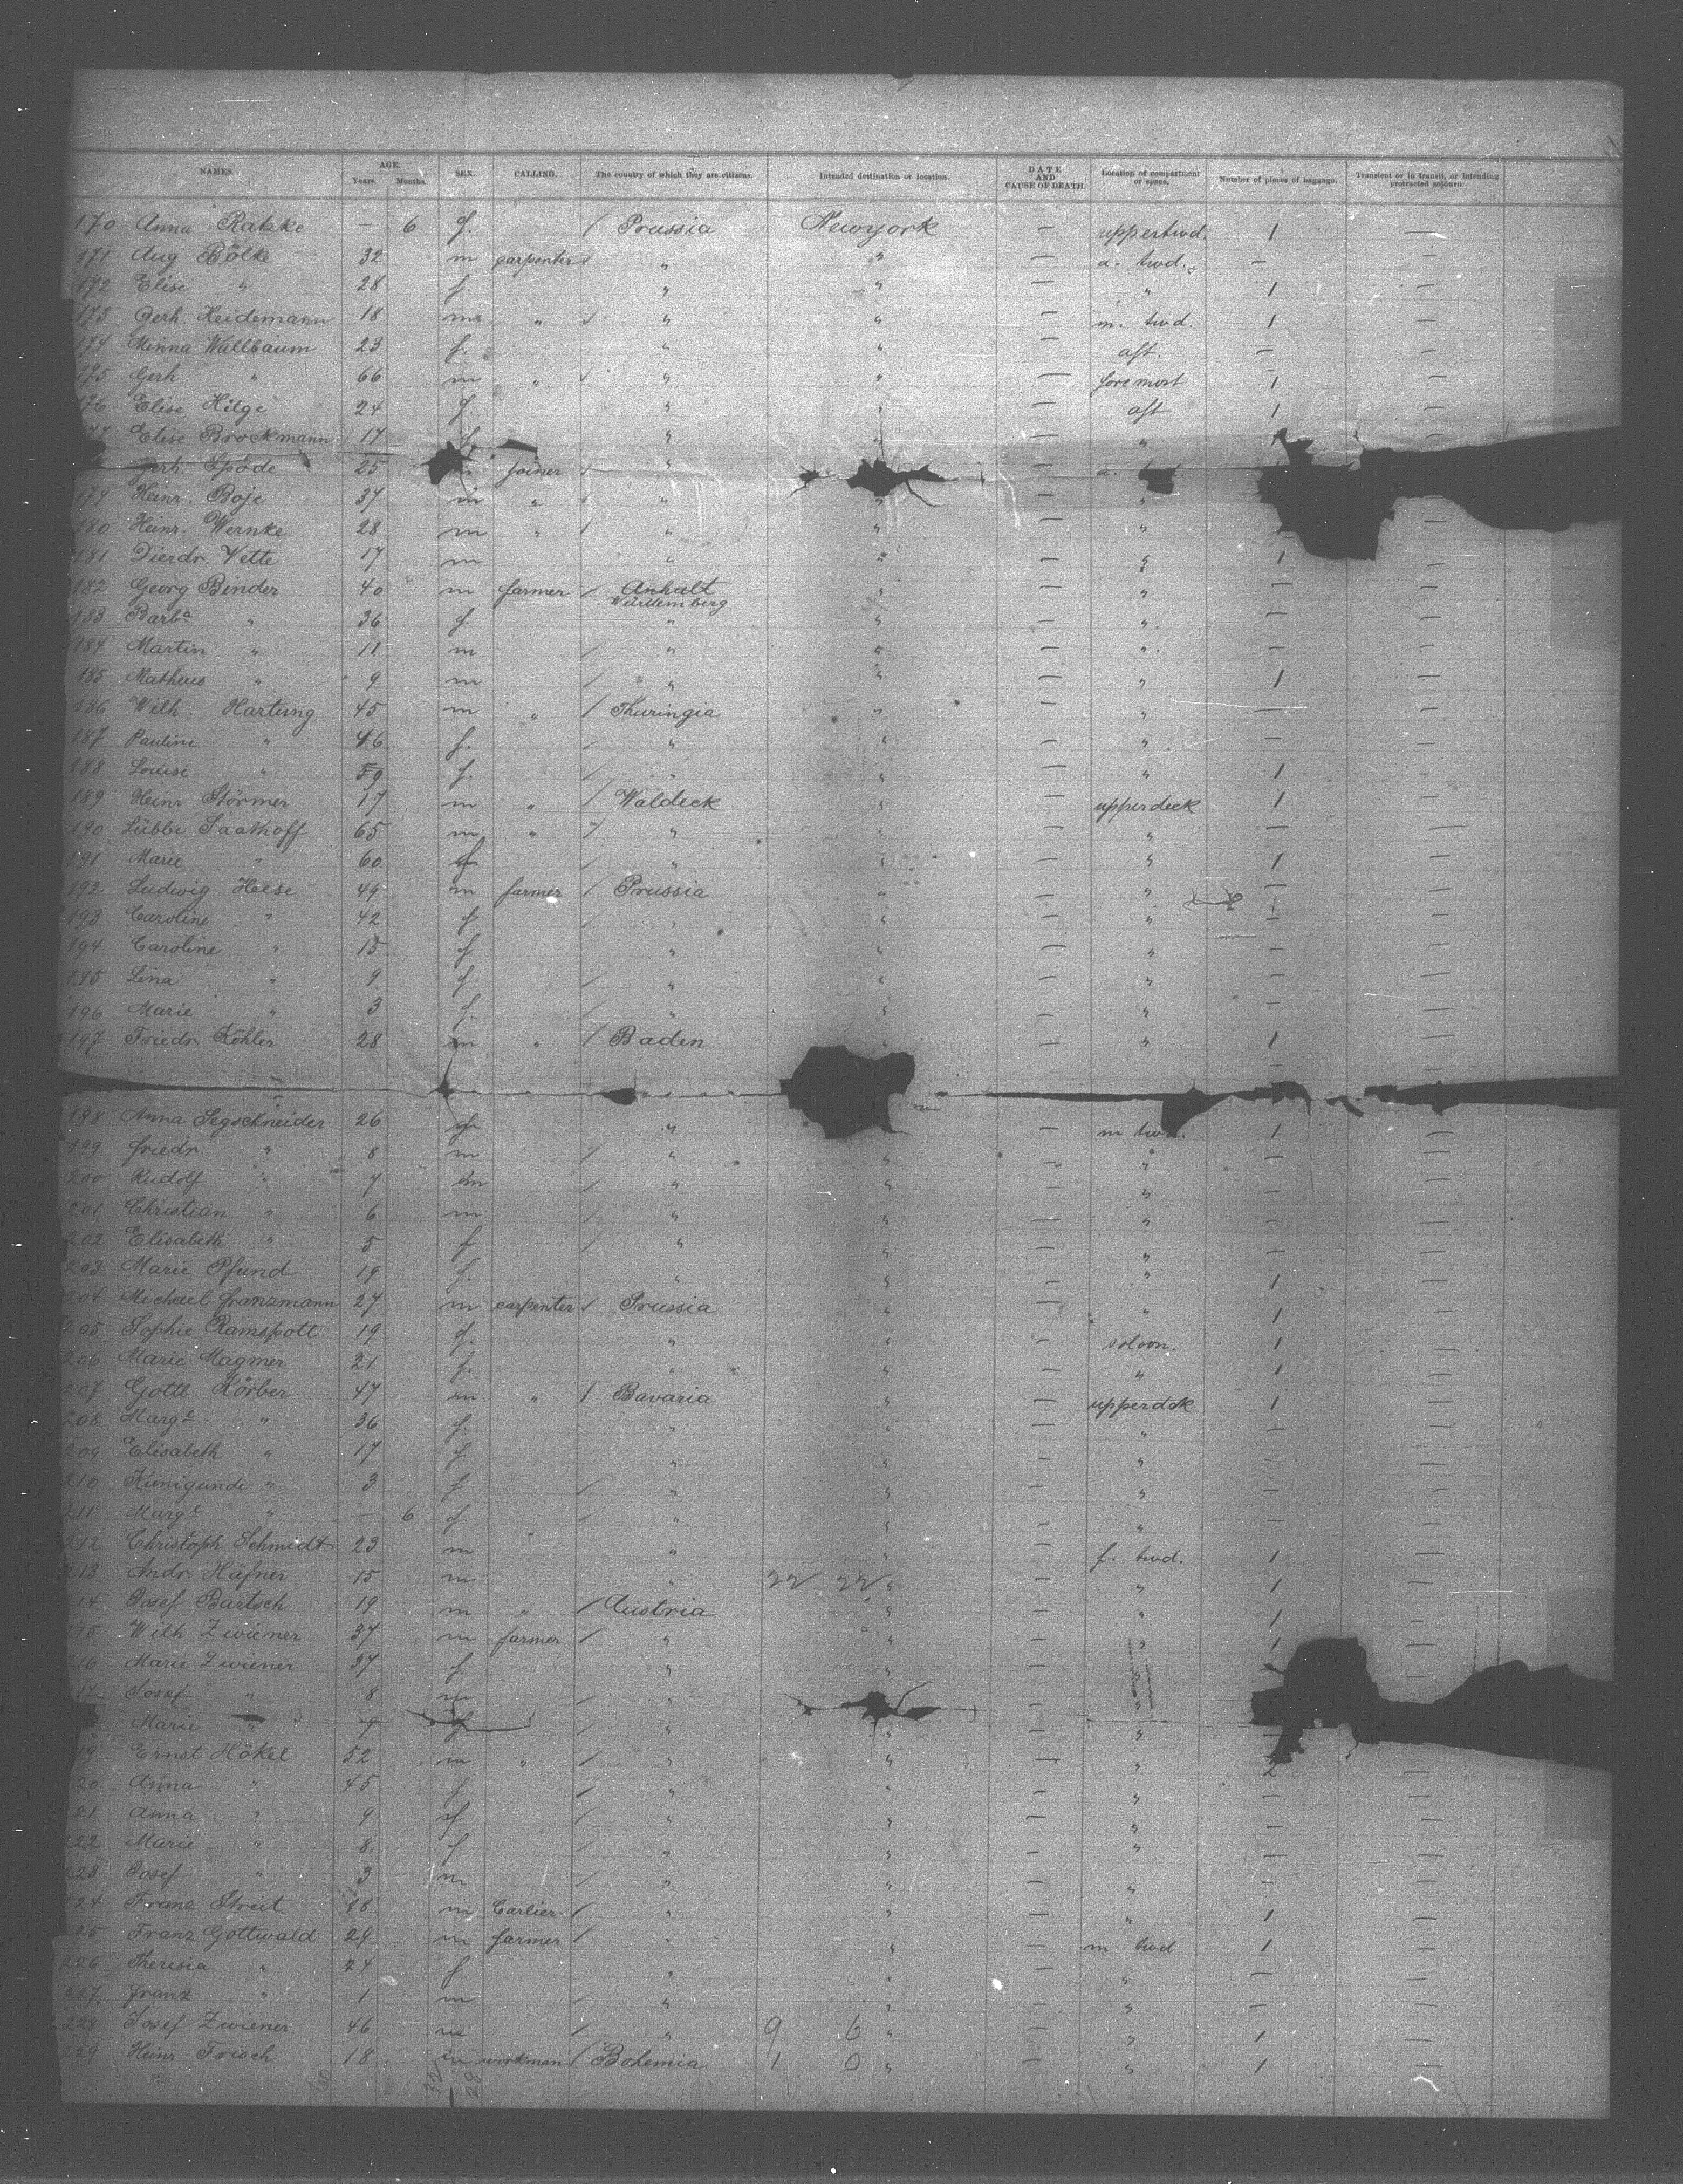 NAMES. AGE. Years. Months. SEX. CALLING. The country of which they are citizens. Intended destination or location. DATE AND CAUSE OF DEATH. Location of compartment or space. Number of pieces of baggage. Transient or in transit, or intending protracted sojourn.
170 Anna Ratzke — 6 f. / Prussia Newyork — uppertwd. 1 —
171 Aug Bölke 32 m carpenter / " " — a. twd. — —
172 Elise " 28 f. " " — " 1 —
173 Gerh. Heidemann 18 m " / " " — m. twd. 1 —
174 Minna Wallbaum 23 f. " " — aft. — —
175 Gerh " 66 m " / " " — foremost 1 —
176 Elise Hilge 24 f. " " — aft 1 —
77 Elise Brockmann 17 f " " — " 1 —
Gerh. Spöde 25 m joiner / " — a.
179 Heinr. Boje 37 m " / " " — "
180 Heinr. Wernke 28 m " / " " — " —
181 Dierdr. Vette 17 m " " — " 1 —
182 Georg Binder 40 m farmer / Anhalt Württemberg " — " — —
183 Barba " 36 f. " " — " — —
184 Martin " 11 m / " " — " — —
185 Matheus " 9 m / " " — " 1 —
186 Wilh. Hartung 45 m " / Thuringia " — " — —
187 Pauline " 46 f. / " " — " — —
188 Louise " 59 f. / " " — " 1 —
189 Heinr Störmer 17 m " / Waldeck " — upperdeck 1 —
190 Lübbe Saathoff 65 m " / " " — " — —
191 Marie " 60 f / " " — " 1 —
192 Ludwig Heese 49 m farmer / Prussia " — " — —
193 Caroline " 42 f / " " — " — —
194 Caroline " 15 f " " — " — —
195 Lina " 9 f / " " — " — —
196 Marie " 3 f. / " " — " — —
197 Friedr. Köhler 28 m " / Baden " — " 1 —
198 Anna Segschneider 26 f " — m twd. 1 —
199 Friedr " 8 m / " " — " — —
200 Rudolf " 7 m / " " — " — —
201 Christian " 6 m / " " — " — —
202 Elisabeth " 5 f / " " — " — —
203 Marie Pfund 19 f. " " — " 1 —
204 Michael Franzmann 27 m carpenter / Prussia " — " 1 —
205 Sophie Ramspott 19 f. " " — soloon. 1 —
206 Marie Magmer 21 f. " " — " 1 —
207 Gottl. Körber 47 m. " / Bavaria " — upperdck 1 —
208 Marge " 36 f. " " — " — —
209 Elisabeth " 17 f " " — " — —
210 Kunigunde " 3 f / " " — " — —
211 Marge " — 6 f. / " " — " — —
212 Christoph Schmidt 23 m " " " — f. twd. 1 —
13 Andr. Häfner 15 m " 22 22 " — " 1 —
14 Josef Bartsch 19 m " / Austria " — " 1 —
15 Wilh Zwiener 37 m farmer / " " — " 1 —
16 Marie Zwiener 37 f. " " — " —
17 Josef " 8 m / " — "
Marie " f / " " — "
19 Ernst Hökel 52 m " / " " — " 2
20. Anna " 45 f / " " — " — —
21 Anna " 9 f / " " — " — —
222 Marie " 8 f " " — " — —
223 Josef " 3 m / " " — " — —
224 Franz Streit 18 m Carlier / " " — " 1 —
25 Franz Gottwald 29 m farmer / " " — m twd 1 —
226 Theresia " 24 f " " — " — —
227 Franz " 1 m / " " — " — —
228 Josef Zwiener 46 m / " 9 6 " — " 1 —
229 Heinr Frisch 18 m workman / Bohemia 1 0 " — " 1 —